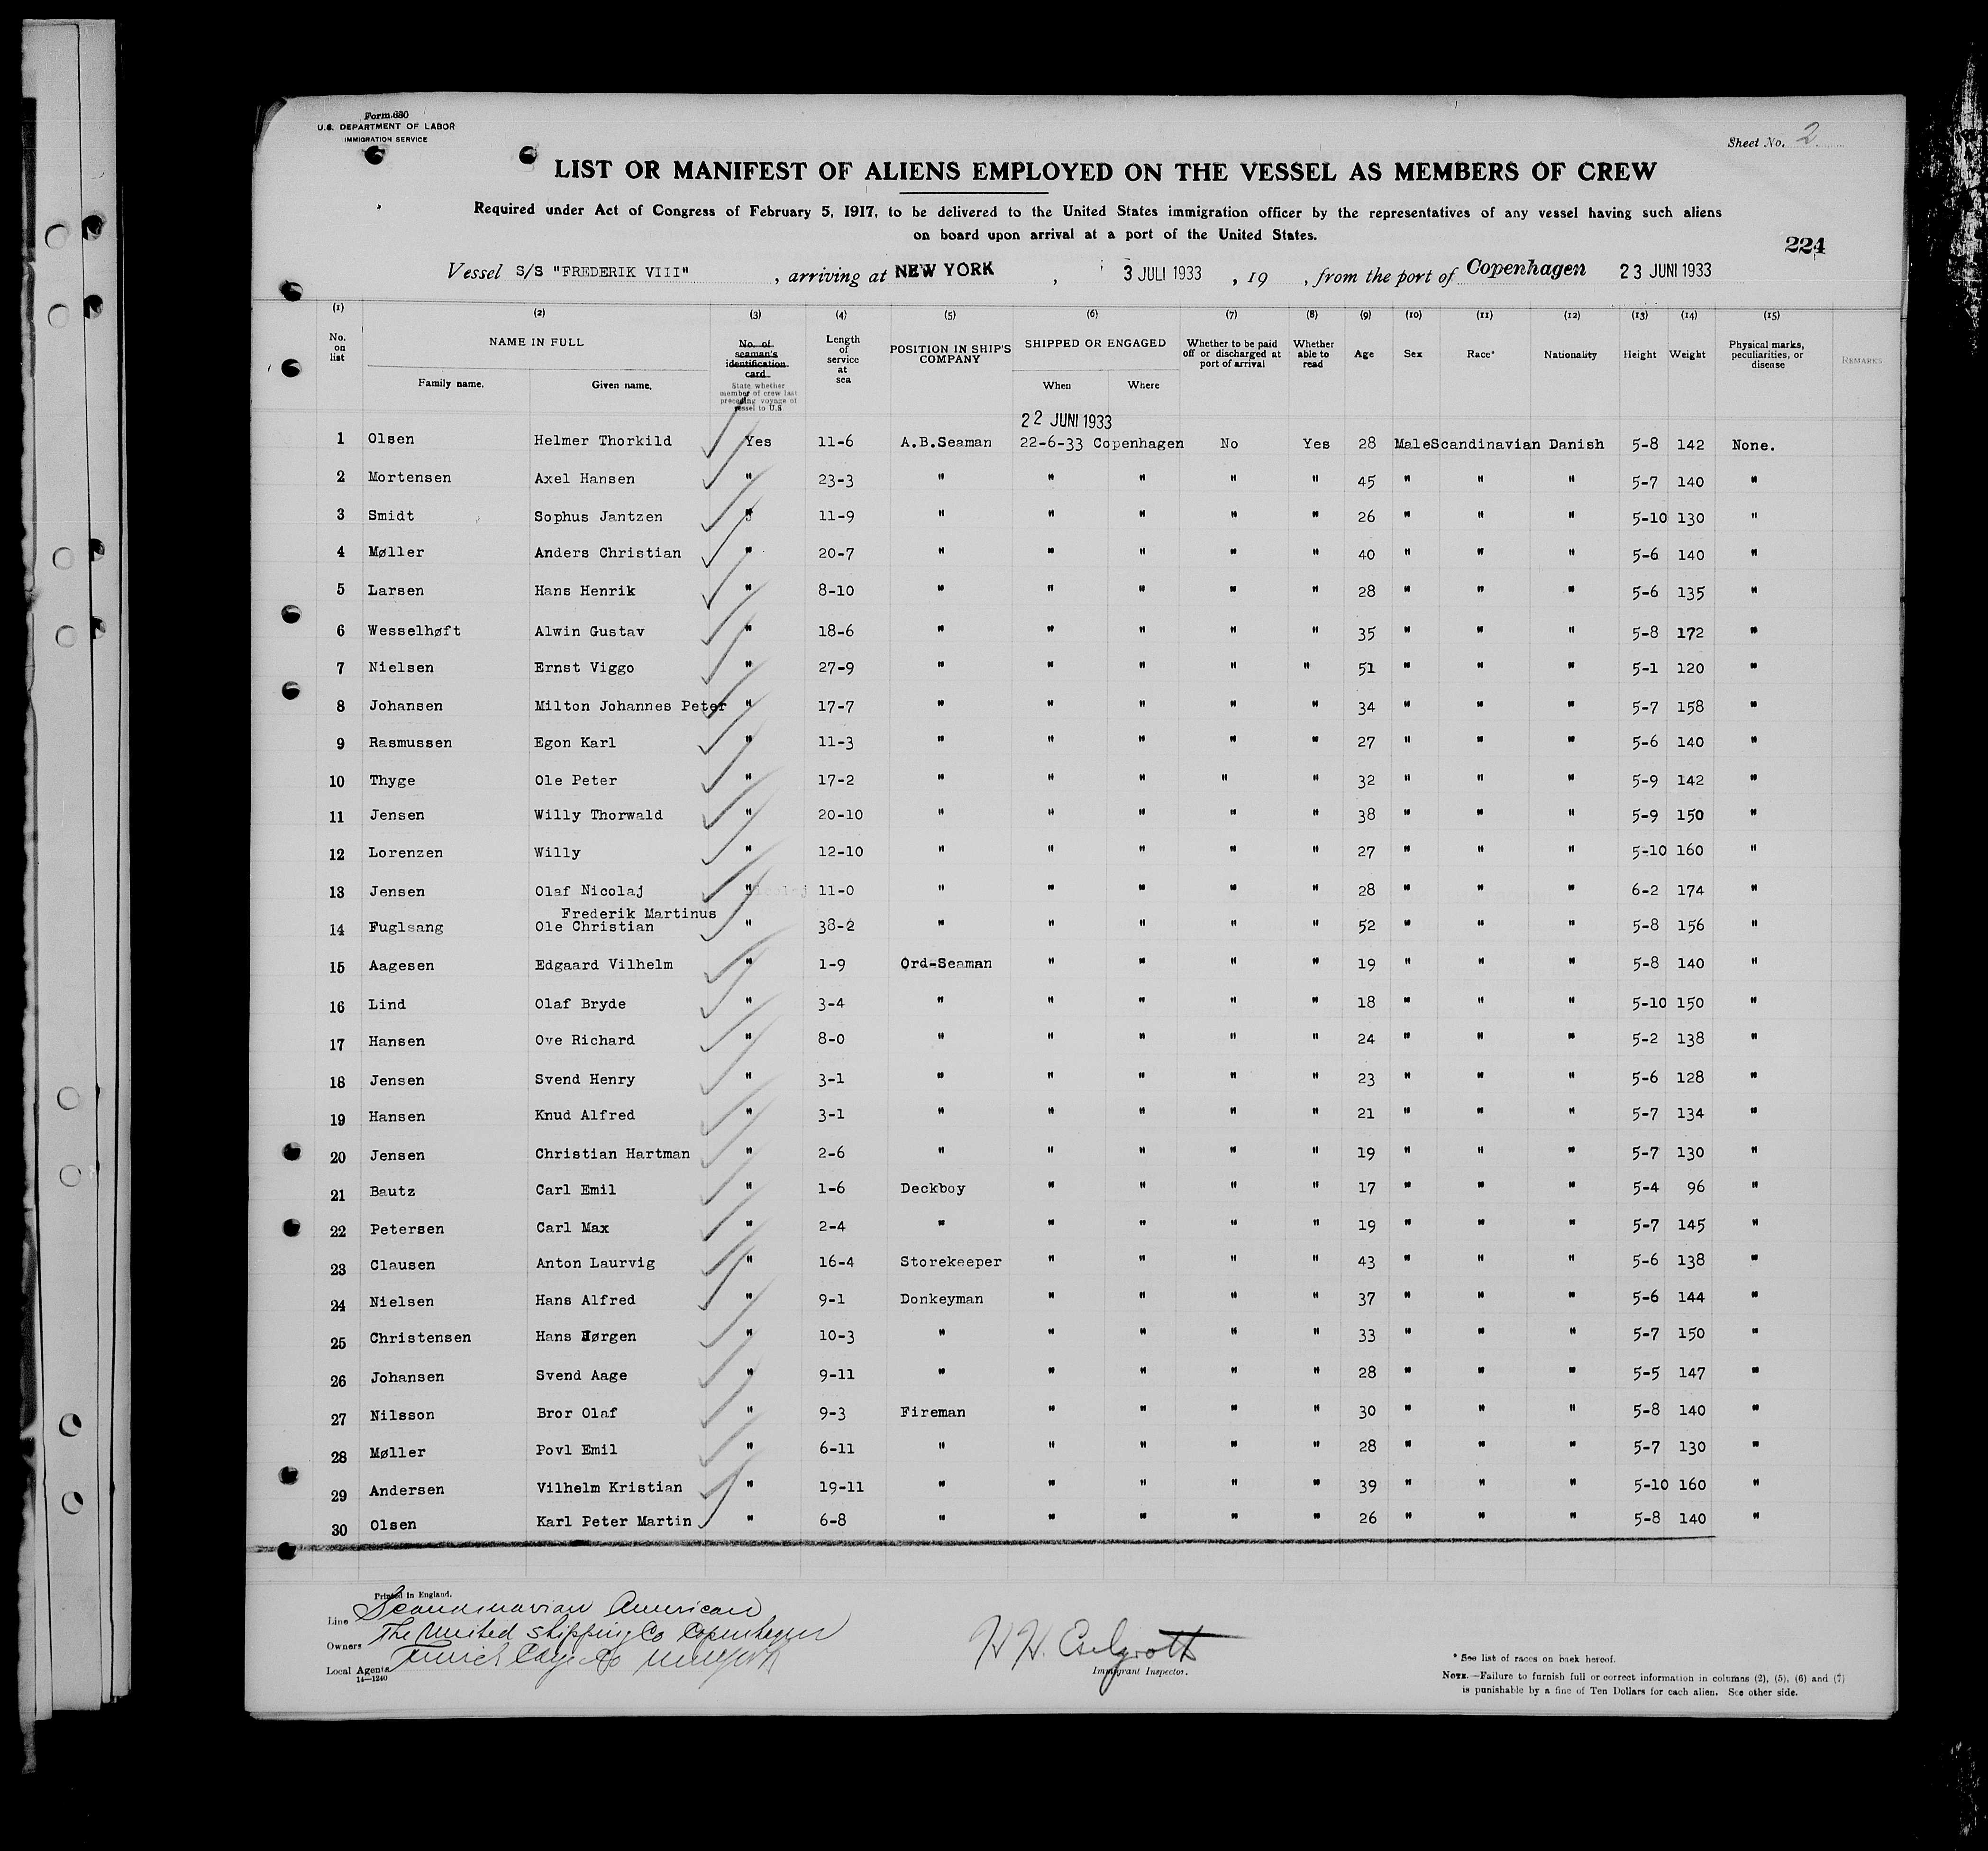 Form 680
U.S. DEPARTMENT OF LABOR
IMMIGRATION SERVICE
Sheet No. 2
LIST OR MANIFEST OF ALIENS EMPLOYED ON THE VESSEL AS MEMBERS OF CREW
Required under Act of Congress of February 5, 1917, to be delivered to the United States immigration officer by the representatives of any vessel having such aliens
on board upon arrival at a port of the United States.
224
Vessel S/S "FREDERIK VIII" , arriving at NEW YORK , 3 JULI 1933 , 19 , from the port of Copenhagen 23 JUNI 1933
(1) (2) (3) (4) (5) (6) (7) (8) (9) (10) (11) (12) (13) (14) (15)
No. on list NAME IN FULL Family name. Given name. No. of seaman's identification card State whether member of crew last preceding voyage of vessel to U.S. Length of service at sea POSITION IN SHIP'S COMPANY SHIPPED OR ENGAGED When Where Whether to be paid off or discharged at port of arrival Whether able to read Age Sex Race* Nationality Height Weight Physical marks, peculiarities, or disease REMARKS
22 JUNI 1933
1 Olsen Helmer Thorkild Yes 11-6 A.B.Seaman 22-6-33 Copenhagen No Yes 28 Male Scandinavian Danish 5-8 142 None.
2 Mortensen Axel Hansen " 23-3 " " " " " 45 " " " 5-7 140 "
3 Smidt Sophus Jantzen " 11-9 " " " " " 26 " " " 5-10 130 "
4 Møller Anders Christian " 20-7 " " " " " 40 " " " 5-6 140 "
5 Larsen Hans Henrik " 8-10 " " " " " 28 " " " 5-6 135 "
6 Wesselhøft Alwin Gustav " 18-6 " " " " " 35 " " " 5-8 172 "
7 Nielsen Ernst Viggo " 27-9 " " " " " 51 " " " 5-1 120 "
8 Johansen Milton Johannes Peter " 17-7 " " " " " 34 " " " 5-7 158 "
9 Rasmussen Egon Karl " 11-3 " " " " " 27 " " " 5-6 140 "
10 Thyge Ole Peter " 17-2 " " " " " 32 " " " 5-9 142 "
11 Jensen Willy Thorwald " 20-10 " " " " " 38 " " " 5-9 150 "
12 Lorenzen Willy " 12-10 " " " " " 27 " " " 5-10 160 "
13 Jensen Olaf Nicolaj " 11-0 " " " " " 28 " " " 6-2 174 "
Frederik Martinus
14 Fuglsang Ole Christian " 38-2 " " " " " 52 " " " 5-8 156 "
15 Aagesen Edgaard Vilhelm " 1-9 Ord-Seaman " " " " 19 " " " 5-8 140 "
16 Lind Olaf Bryde " 3-4 " " " " " 18 " " " 5-10 150 "
17 Hansen Ove Richard " 8-0 " " " " " 24 " " " 5-2 138 "
18 Jensen Svend Henry " 3-1 " " " " " 23 " " " 5-6 128 "
19 Hansen Knud Alfred " 3-1 " " " " " 21 " " " 5-7 134 "
20 Jensen Christian Hartman " 2-6 " " " " " 19 " " " 5-7 130 "
21 Bautz Carl Emil " 1-6 Deckboy " " " " 17 " " " 5-4 96 "
22 Petersen Carl Max " 2-4 " " " " " 19 " " " 5-7 145 "
23 Clausen Anton Laurvig " 16-4 Storekeeper " " " " 43 " " " 5-6 138 "
24 Nielsen Hans Alfred " 9-1 Donkeyman " " " " 37 " " " 5-6 144 "
25 Christensen Hans Jørgen " 10-3 " " " " " 33 " " " 5-7 150 "
26 Johansen Svend Aage " 9-11 " " " " " 28 " " " 5-5 147 "
27 Nilsson Bror Olaf " 9-3 Fireman " " " " 30 " " " 5-8 140 "
28 Møller Povl Emil " 6-11 " " " " " 28 " " " 5-7 130 "
29 Andersen Vilhelm Kristian " 19-11 " " " " " 39 " " " 5-10 160 "
30 Olsen Karl Peter Martin " 6-8 " " " " " 26 " " " 5-8 140 "
Printed in England.
Line Scandinavian American
Owners The United Shipping Co Copenhagen
Local Agents
14—1240
H H
Immigrant Inspector.
* See list of races on back hereof.
NOTE.—Failure to furnish full or correct information in columns (2), (5), (6) and (7)
is punishable by a fine of Ten Dollars for each alien. See other side.